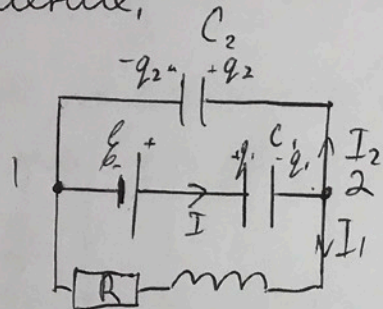 C₂
-q₂ +q₂
1 ℰ - + +q₁ C₁ -q₁ I₂
I 2
I₁
R